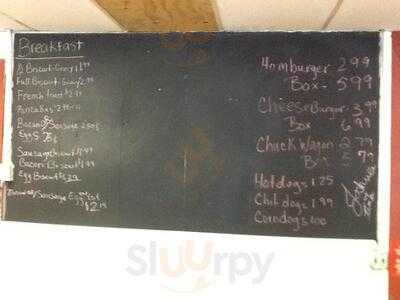 Breakfast
½ Biscuit-Gravy 1.99
Full Biscuit-Gravy 2.99
French toast $2.99
Pancakes 2.99
Bacon or Sausage 2 eggs
Eggs
Sausage biscuit 1.99
Bacon Biscuit $1.99
Egg Biscuit $1.29
Sausage Egg
$2.19
Hamburger 2.99
Box - 5.99
Cheese Burger 3.99
Box 6.99
Chuck Wagon 2.79
Box 5.79
Hotdogs 1.25
Chili dogs 1.99
Corndogs 1.00
Sluurpy